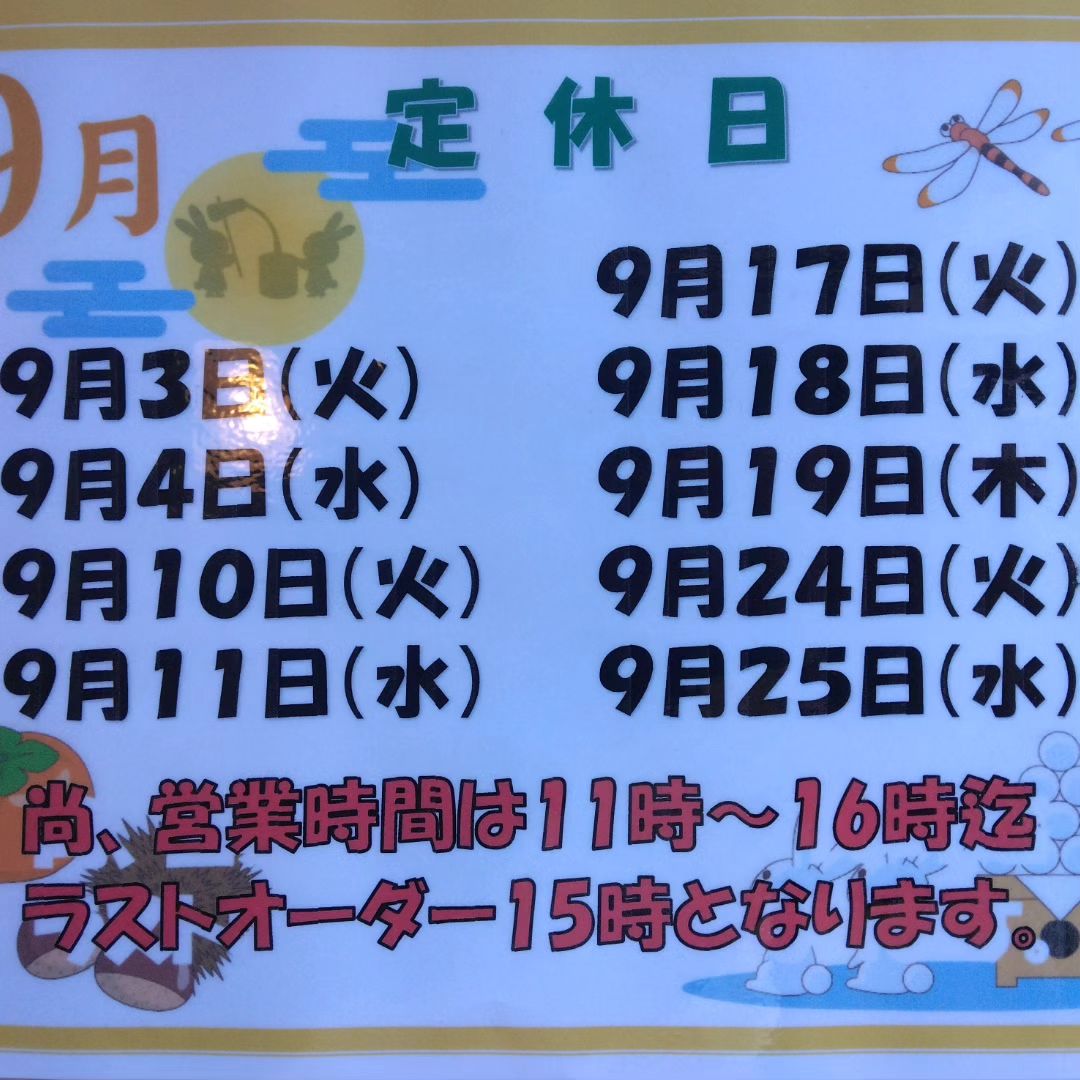 9月
定休日
9月3日(火)
9月4日(水)
9月10日(火)
9月11日(水)
9月17日(火)
9月18日(水)
9月19日(木)
9月24日(火)
9月25日(水)
尚、営業時間は11時～16時迄
ラストオーダー15時となります。